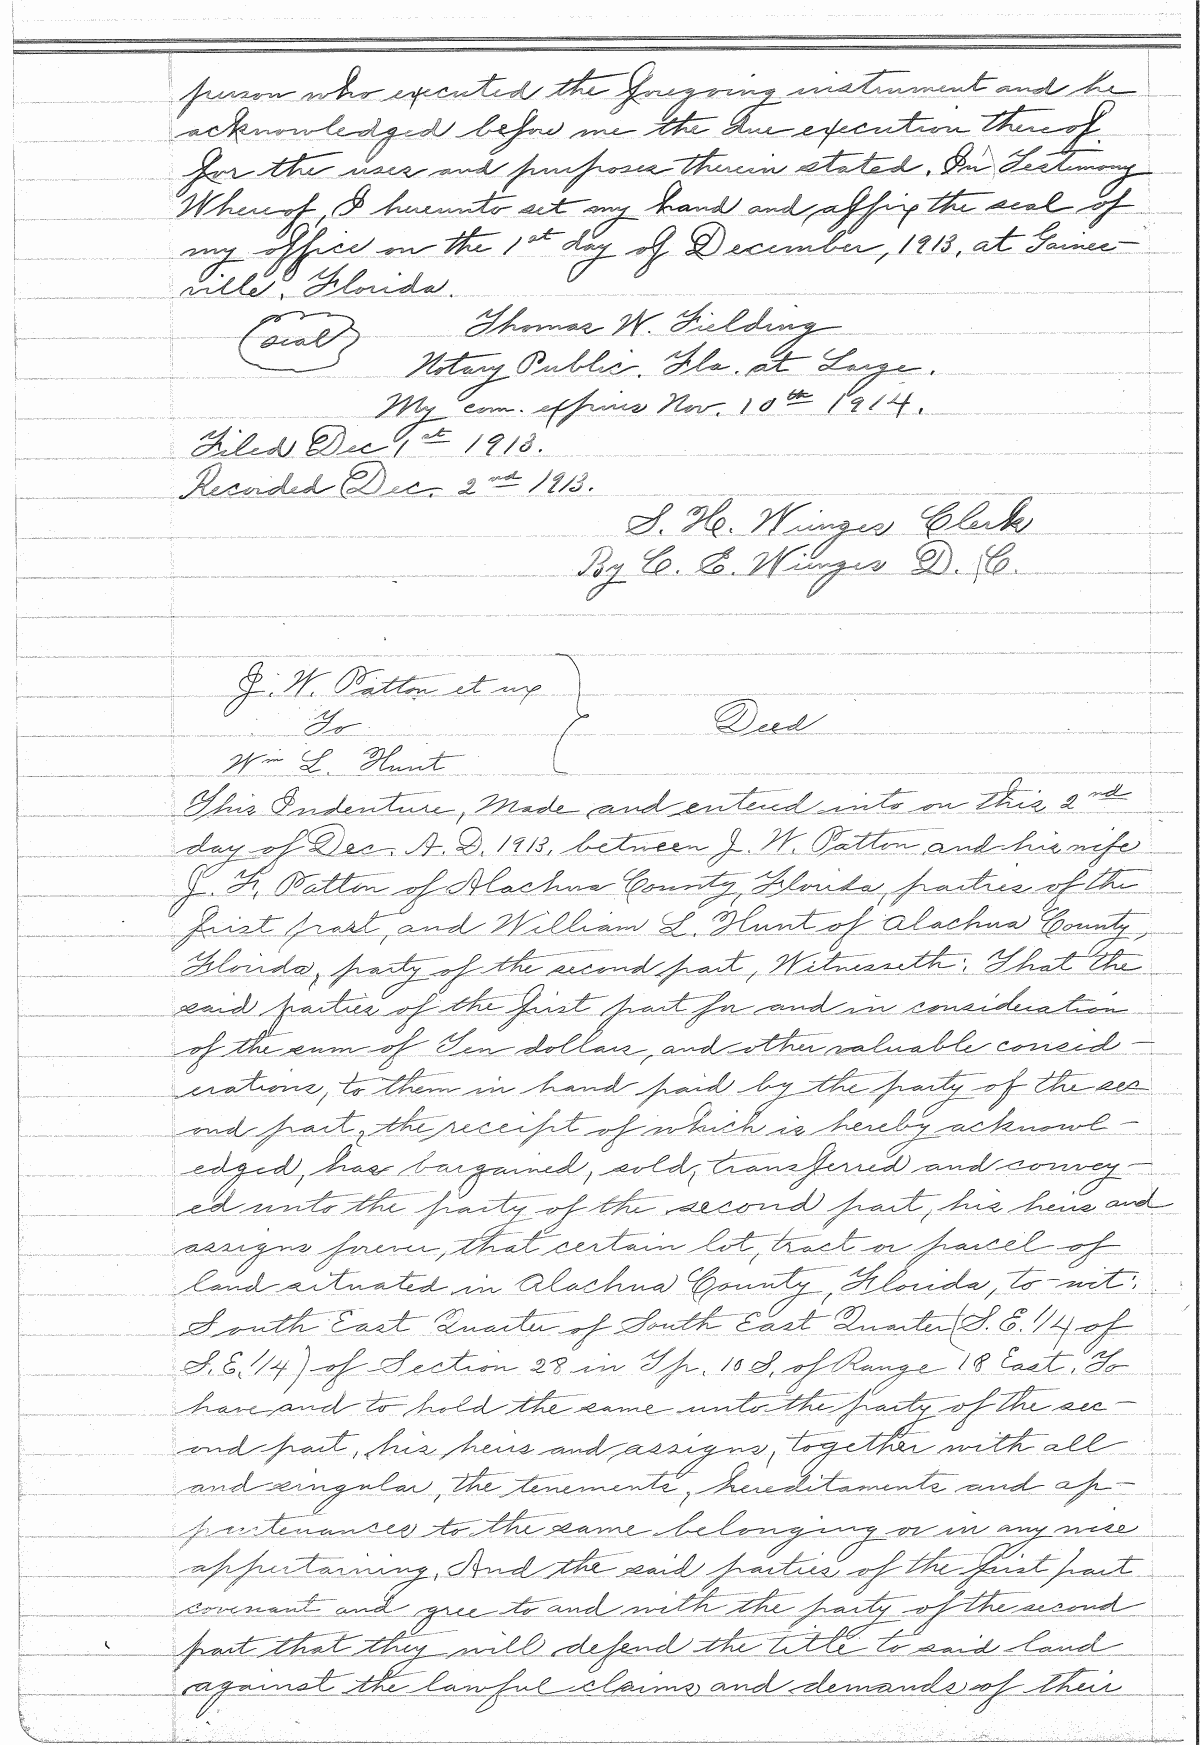 person who executed the foregoing instrument and he
acknowledged before me the due execution thereof
for the uses and purposes therein stated. In Testimony
Whereof, I hereunto set my hand and affix the seal of
my office on the 1st day of December, 1913, at Gaines-
ville, Florida.
(seal) Thomas W. Fielding
Notary Public. Fla. at Large.
My com. expires Nov. 10th 1914.
Filed Dec 1st 1913.
Recorded Dec. 2nd 1913.
S. H. Wienges Clerk
By C. E. Wienges D. C.
J. W. Patton et ux
To Deed
Wm L. Hunt
This Indenture, Made and entered into on this 2nd
day of Dec. A. D. 1913, between J. W. Patton and his wife
J. F. Patton of Alachua County, Florida, partres of the
first part, and William L. Hunt of Alachua County,
Florida, party of the second part, Witnesseth: That the
said parties of the first part for and in consideration
of the sum of Ten dollars, and other valuable consid-
erations, to them in hand paid by the party of the sec
ond part, the receipt of which is hereby acknowl-
edged, has bargained, sold, transferred and convey-
ed unto the party of the second part, his heirs and
assigns forever, that certain lot, tract or parcel of
land situated in Alachua County, Florida, to-wit:
South East Quarter of South East Quarter (S. E. 1/4 of
S. E. 1/4) of Section 28 in Tp. 10 S. of Range 18 East. To
have and to hold the same unto the party of the sec-
ond part, his heirs and assigns, together with all
and singular, the tenements, hereditaments and ap-
purtenances to the same belonging or in any wise
appertaining. And the said parties of the first part
covenant and gree to and with the party of the second
part that they will defend the title to said land
against the lawful claims and demands of their